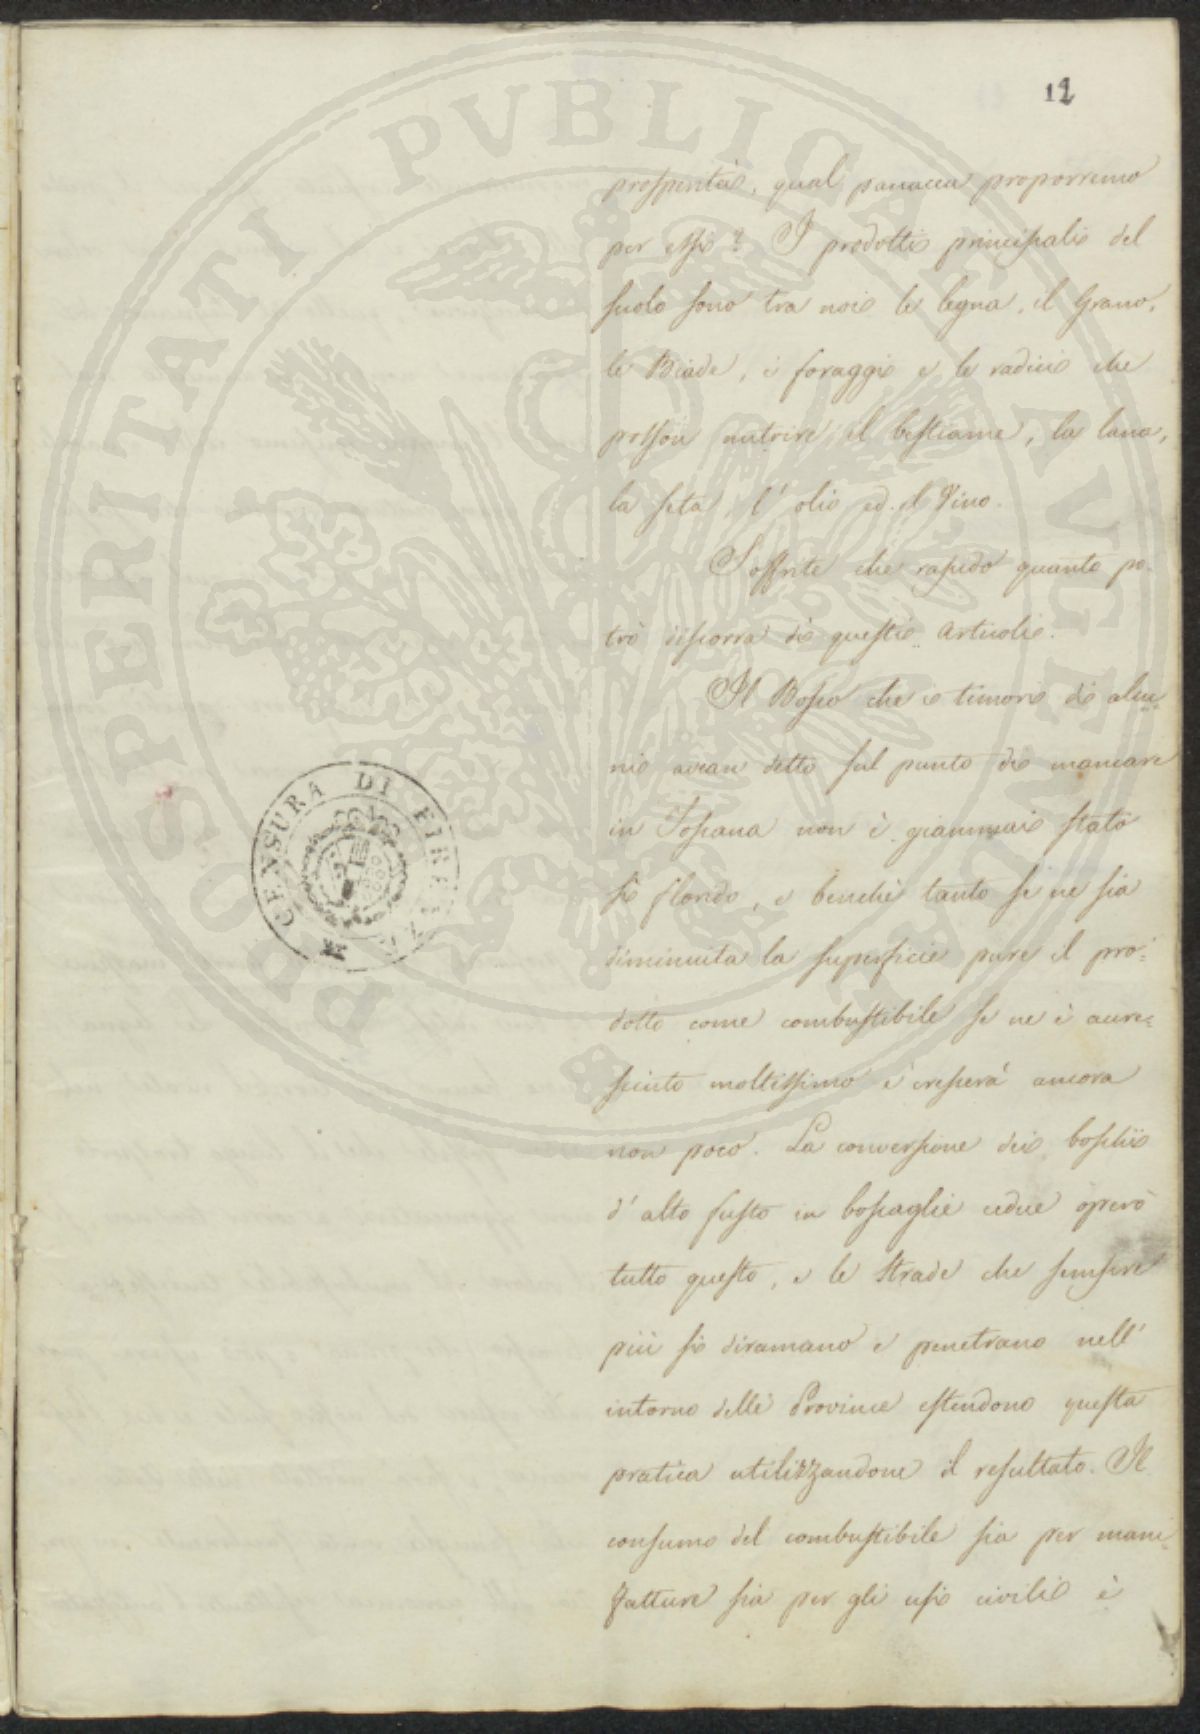 12
prosperità, qual panacea proporremo
per essi? I prodotti principali del
suolo sono tra noi le legna, il Grano,
le Biade, i foraggi e le radici che
posson nutrire il bestiame, la lana,
la seta, l'olio ed il Vino.
Soffrite che rapido quanto po-
trò discorra di questi articoli.
Il Bosco che i timori di alcu-
ni avean detto sul punto di mancare
in Toscana non è giammai stato
sì florido, e benchè tanto se ne sia
diminuita la superficie pure il pro-
dotto come combustibile se ne è accre-
sciuto moltissimo e crescerà ancora
non poco. La conversione dei boschi
d'alto fusto in boscaglie cedue operò
tutto questo, e le Strade che sempre
più si diramano e penetrano nell'
intorno delle Province estendono questa
pratica utilizzandone il resultato. Il
consumo del combustibile sia per mani-
fatture sia per gli usi civili è
CENSURA DI FIRENZE
PROSPERITATI PVBLICAE AVGENDAE